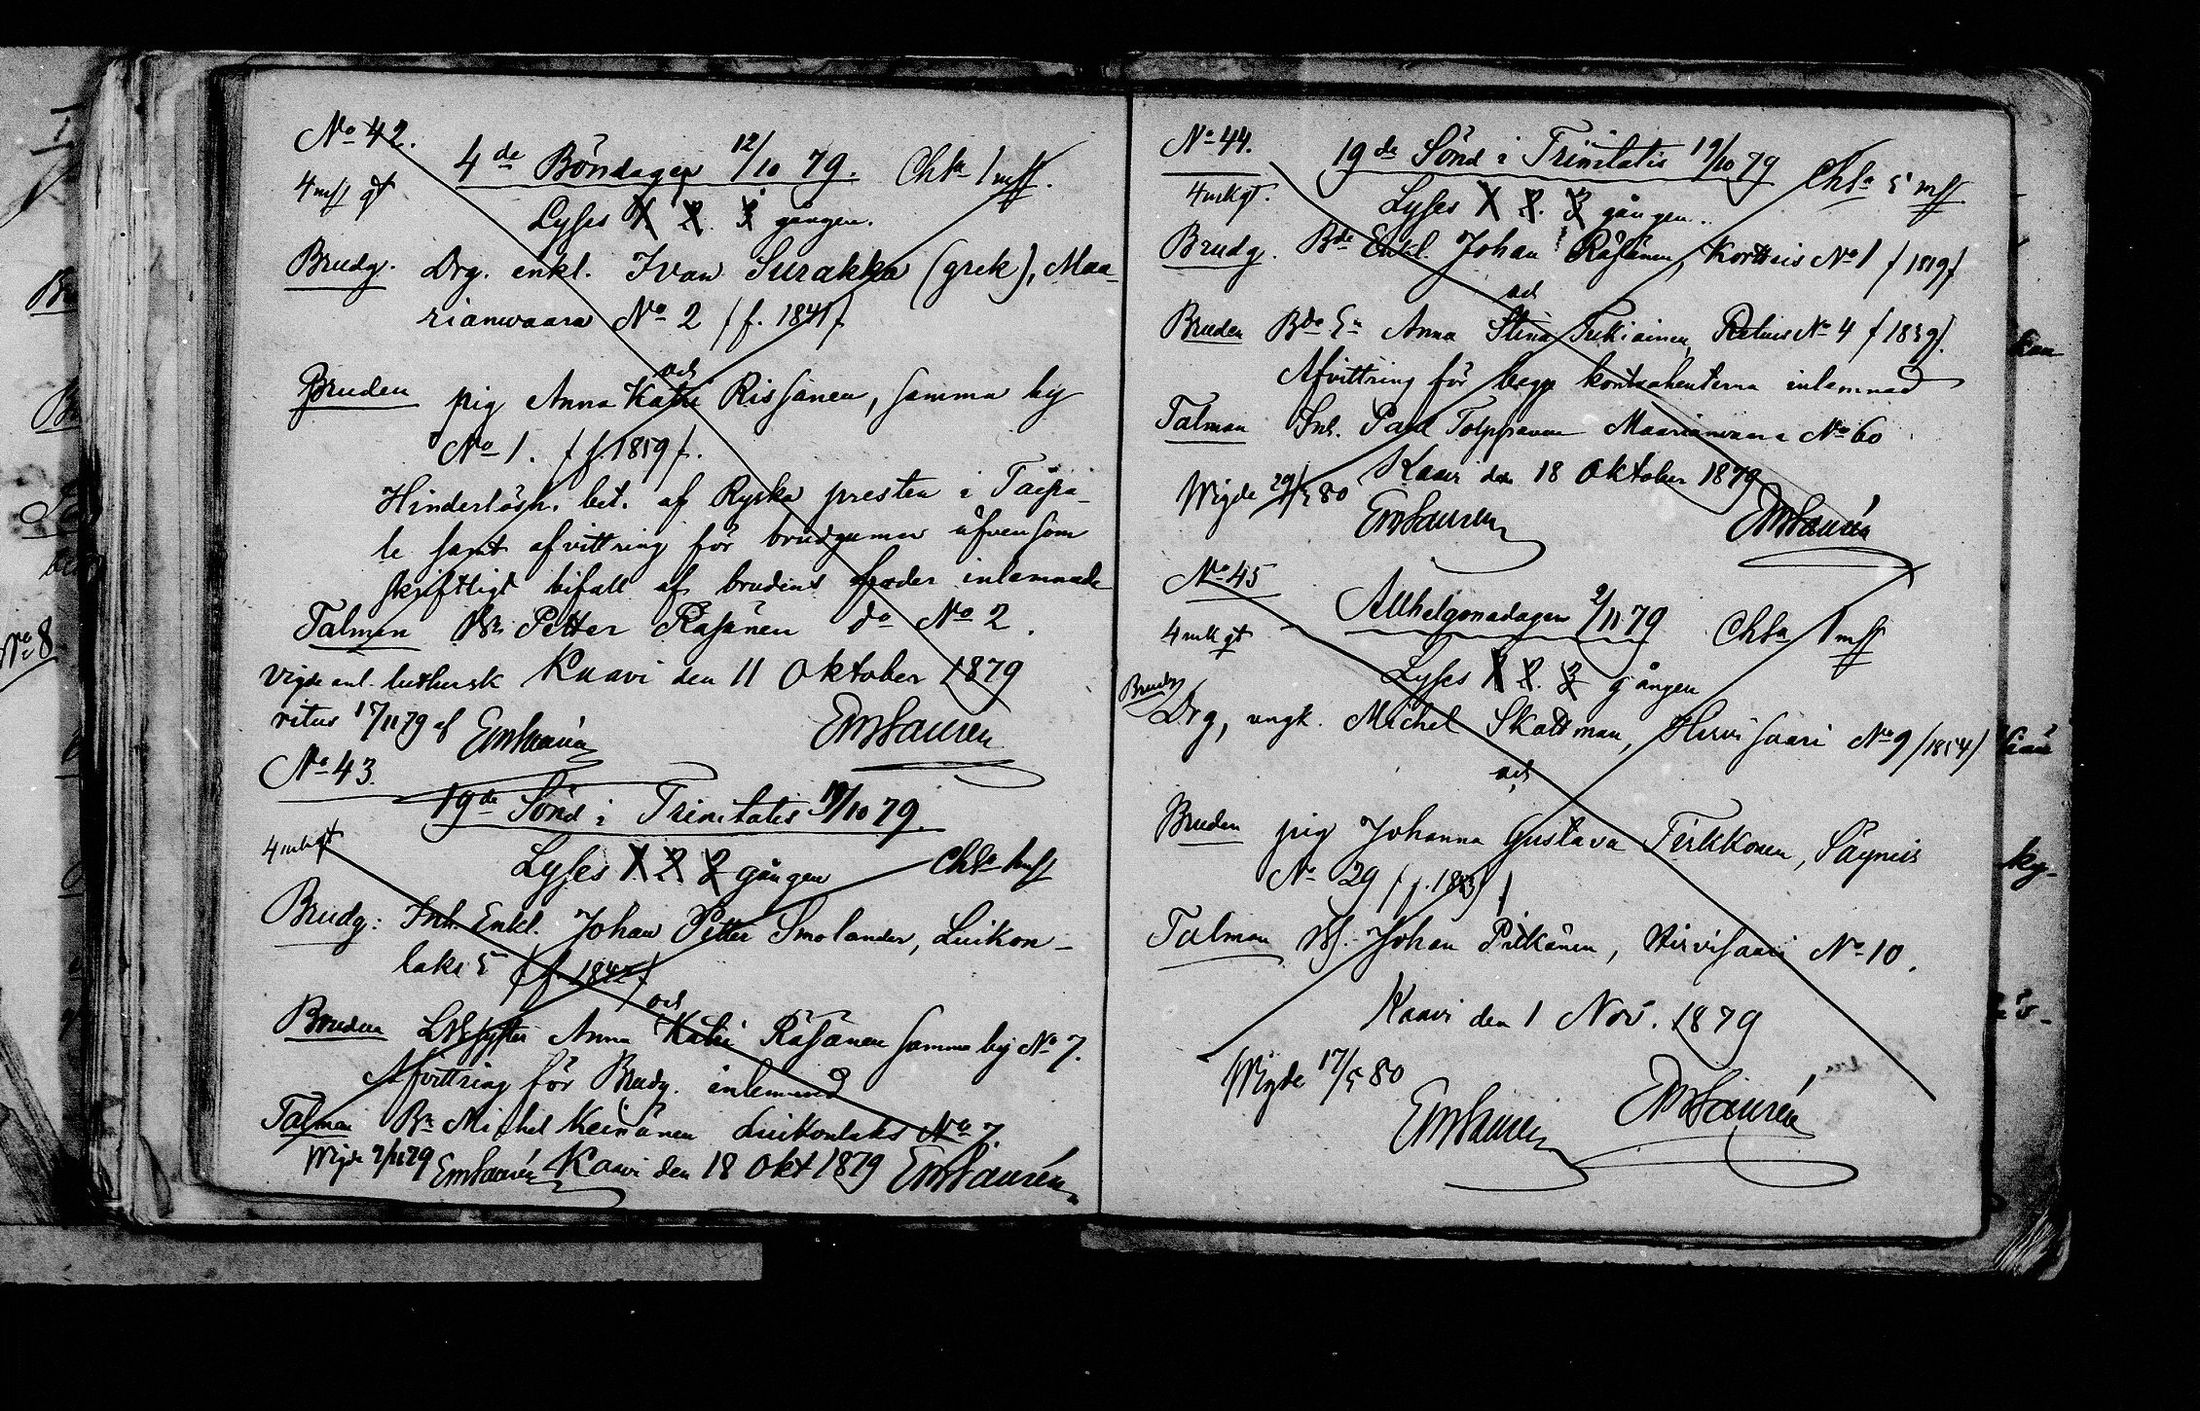 No 42.
4 de Böndagen 12/10 79. Chta 1 mk.
4 mk gt
Lyses 1 2. 3 gången.
Brudg. Drg. enkl. Ivan Surakka (grek), Maa-
rianwaara No 2 (f. 1841).
och
Bruden pig Anna Katri Rissanen, samma by
No 1. (f. 1859).
Hinderlösh. bet. af Ryska presten i Taipa-
le samt afvittring för brudgumen äfvensom
skriftligt bifall af brudens fader inlemnade
Talman Petter Räsänen do No 2.
Vigde enl. luthersk Kaavi den 11 Oktober 1879
ritus 17/11 79 af EmLaurén EmLaurén
No 43.
19de Sönd i Trinitatis 19/10 79.
4 mk gt
Lyses 1. 2 3 gången Chta 1 mk
Brudg: Inh. Enkl. Johan Petter Smolander, Luikon-
laks 5 (f. 1842)
och
Bruden Anna Katri Räsänen samma by No 7.
Afvittring för Brudg. inlemnad
Talman Bn Michel Keinänen Luikonlaks No 7.
Wigde 9/11 79 EmLaurén Kaavi den 18 Okt 1879 EmLaurén
No 44.
19 de Sönd i Trinitatis 19/10 79 Chta 5 mk
4 mk gt.
Lyses 1 2. 3 gången.
Brudg. Bde Enkl. Johan Räsänen, Kortteis No 1 (1819)
och
Bruden Anna Stina Tukiainen, No 4 (1839).
Afvittring för begge kontrahenterna inlemnad
Talman Inh. Paul Tolppanen Maarianvaara No 60
Kaavi den 18 Oktober 1879
Wigde 29/5 80 EmLaurén EmLaurén
No 45
Allhelgonadagen 2/11 79 Chta 1 mk
4 mk gt
Lyses 1 2. 3 gången
Brudg
Drg, ungk. Michel Skottman, Hirvisaari No 9 (1854)
och
Bruden pig Johanna Gustava Tirkkonen, Säyneis
No 29
Talman Johan Pitkänen, Hirvisaari No 10.
Kaavi den 1 Nov. 1879
Wigde 17/5 80
EmLaurén EmLaurén